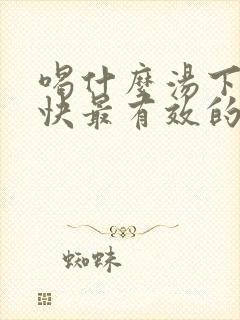 喝什麼湯下
快最有效的
蜘蛛